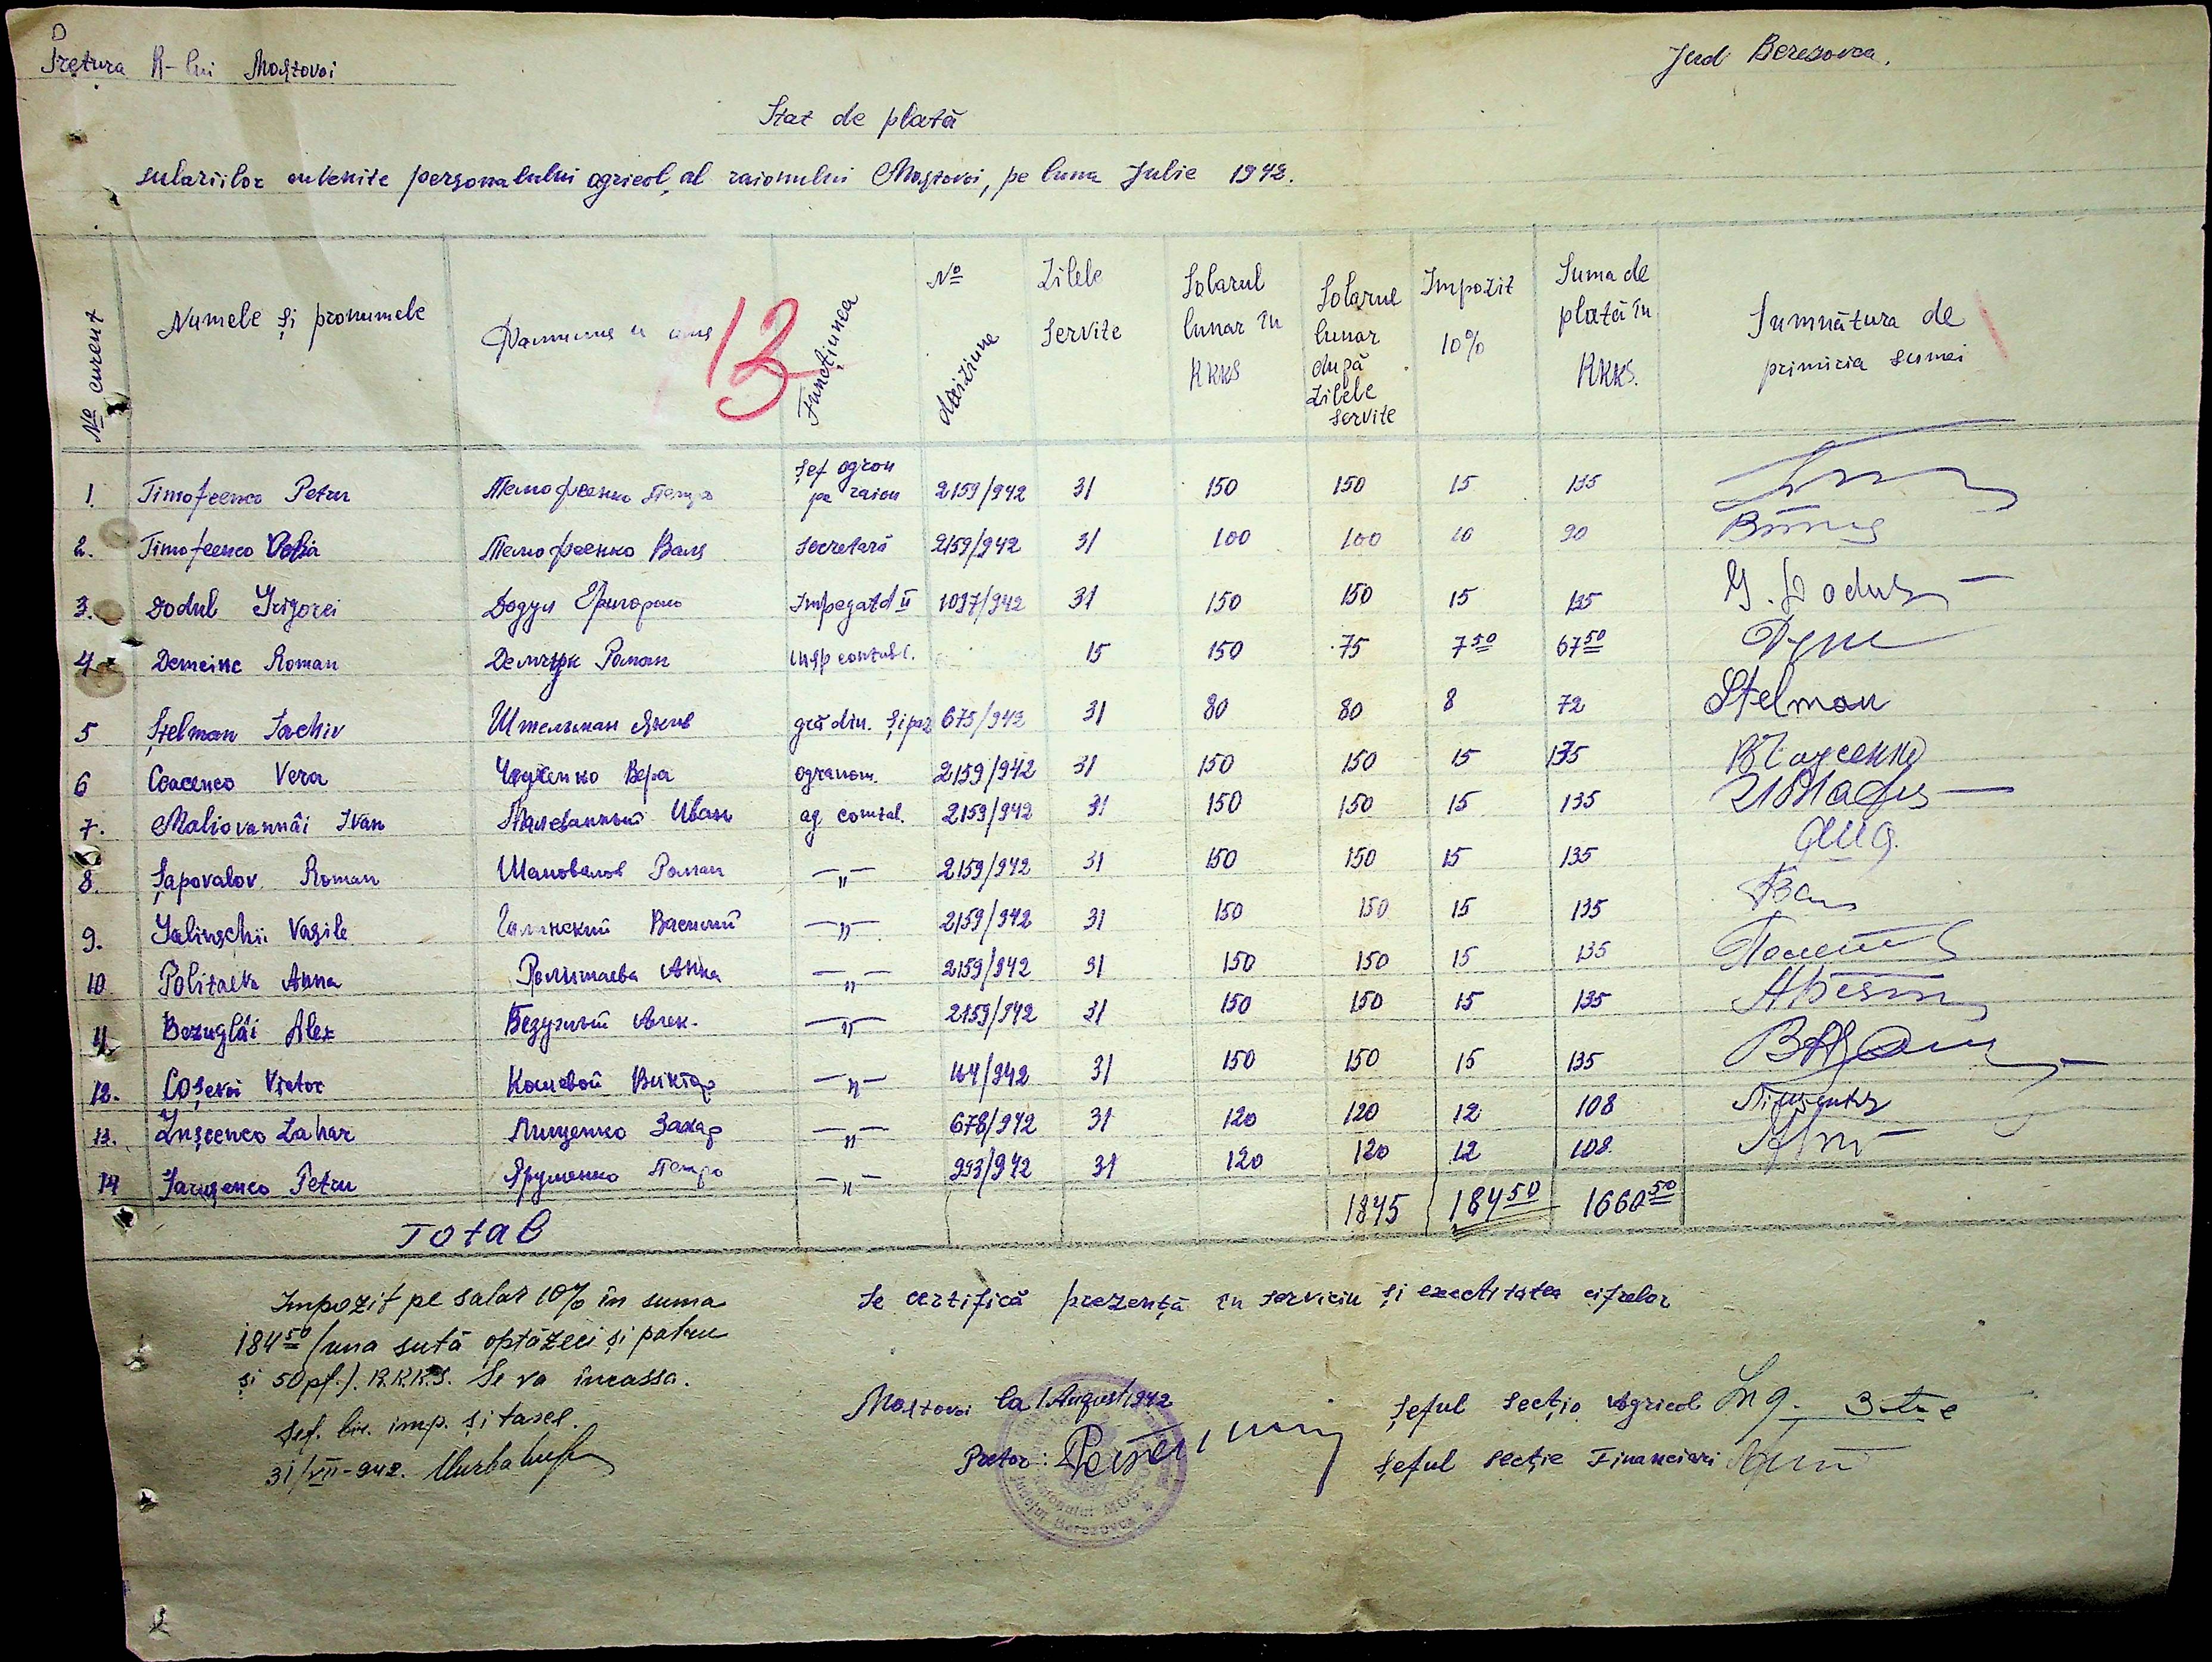 Pretura R-lui Mostovoi
Jud Berezovca.
Stat de plată
salariilor cuvenite personalului agricol, al raionului Mostovoi, pe luna Julie 1942.
№ curent
Numele și pronumele
Фамилия и имя
13
Funcțiunea
№ diziziune
Zilele servite
Solarul lunar în RKKS
Solarul lunar după zilele servite
Impozit 10%
Suma de plată în RKKS.
Sumnătura de primiria sumei
1. Timofeenco Petru Тимофеенко Петро șef agron pe raion 2159/942 31 150 150 15 135
2. Timofeenco Valia Тимофеенко Валя secretară 2159/942 31 100 100 10 90
3. Dodul Grigorei Додул Григорий Impegatd II 1097/942 31 150 150 15 135 G. Dodul
4. Demciuc Roman Демчук Роман insp contabl. 15 150 75 7 50 67 50
5 Ștelman Iachiv Штельман Яхив grădin. și paz 675/942 31 80 80 8 72 Stelman
6 Ceacenco Vera Чаченко Вера agranom. 2159/942 31 150 150 15 135
7. Maliovannâi Ivan Малеванный Иван ag comtal. 2159/942 31 150 150 15 135
8. Șapovalov Roman Шаповалов Роман —„— 2159/942 31 150 150 15 135
9. Galinschii Vasile Галинский Василий —„— 2159/942 31 150 150 15 135
10 Politaeva Anna Политаева Анна —„— 2159/942 31 150 150 15 135
11 Bezuglâi Alex Безуглый Алек. —„— 2159/942 31 150 150 15 135
12. Coșevoi Victor Кошевой Виктор —„— 164/942 31 150 150 15 135
13. Lușcenco Zahar Лищенко Захар —„— 678/942 31 120 120 12 108
14 Iarușenco Petru Ярушенко Петро —„— 993/942 31 120 120 12 108
Total 1845 184 50 1660 50
Impozit pe salar 10% în suma
184 50 (una sută optăzeci și patru
și 50 pf.). R.K.K.S. Se va încassa.
Șef. bir. imp. și taxel.
31/VII-942.
Se certifică prezența în serviciu și exactitatea cifrelor
Mostovoi la 1 August 1942
Pretor:
Șeful secția Agricol Ing.
Șeful secție Financiari
Raionului MOSTOVOI
Județul Berezovca